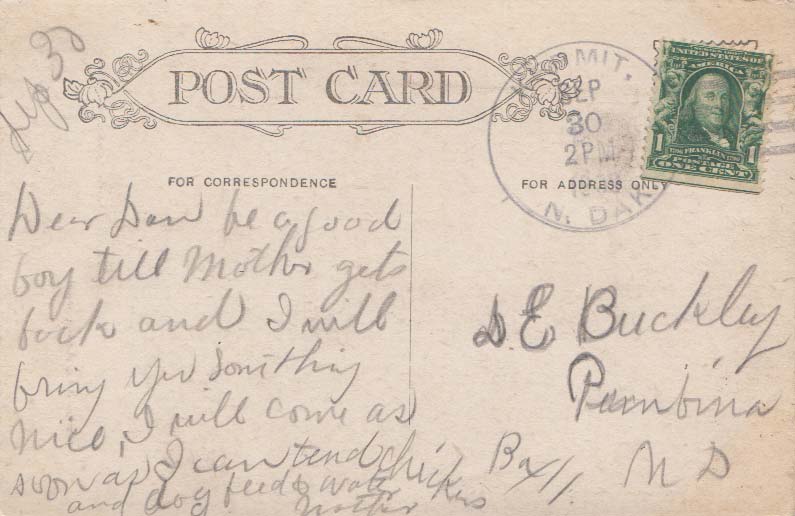 Sep 30
POST CARD
MIT.
SEP
30
2PM
N. DAK
UNITED STATES OF
AMERICA
1
1
FRANKLIN
POSTAGE
ONE CENT
FOR CORRESPONDENCE
FOR ADDRESS ONLY
Dear Dan be a good
boy till Mother gets
back and I will
bring you Something
nice, I will come as
soon as I can tend chickens
and dog feed & water
Mother
D. E Buckley
Pembina
Box 11. N D